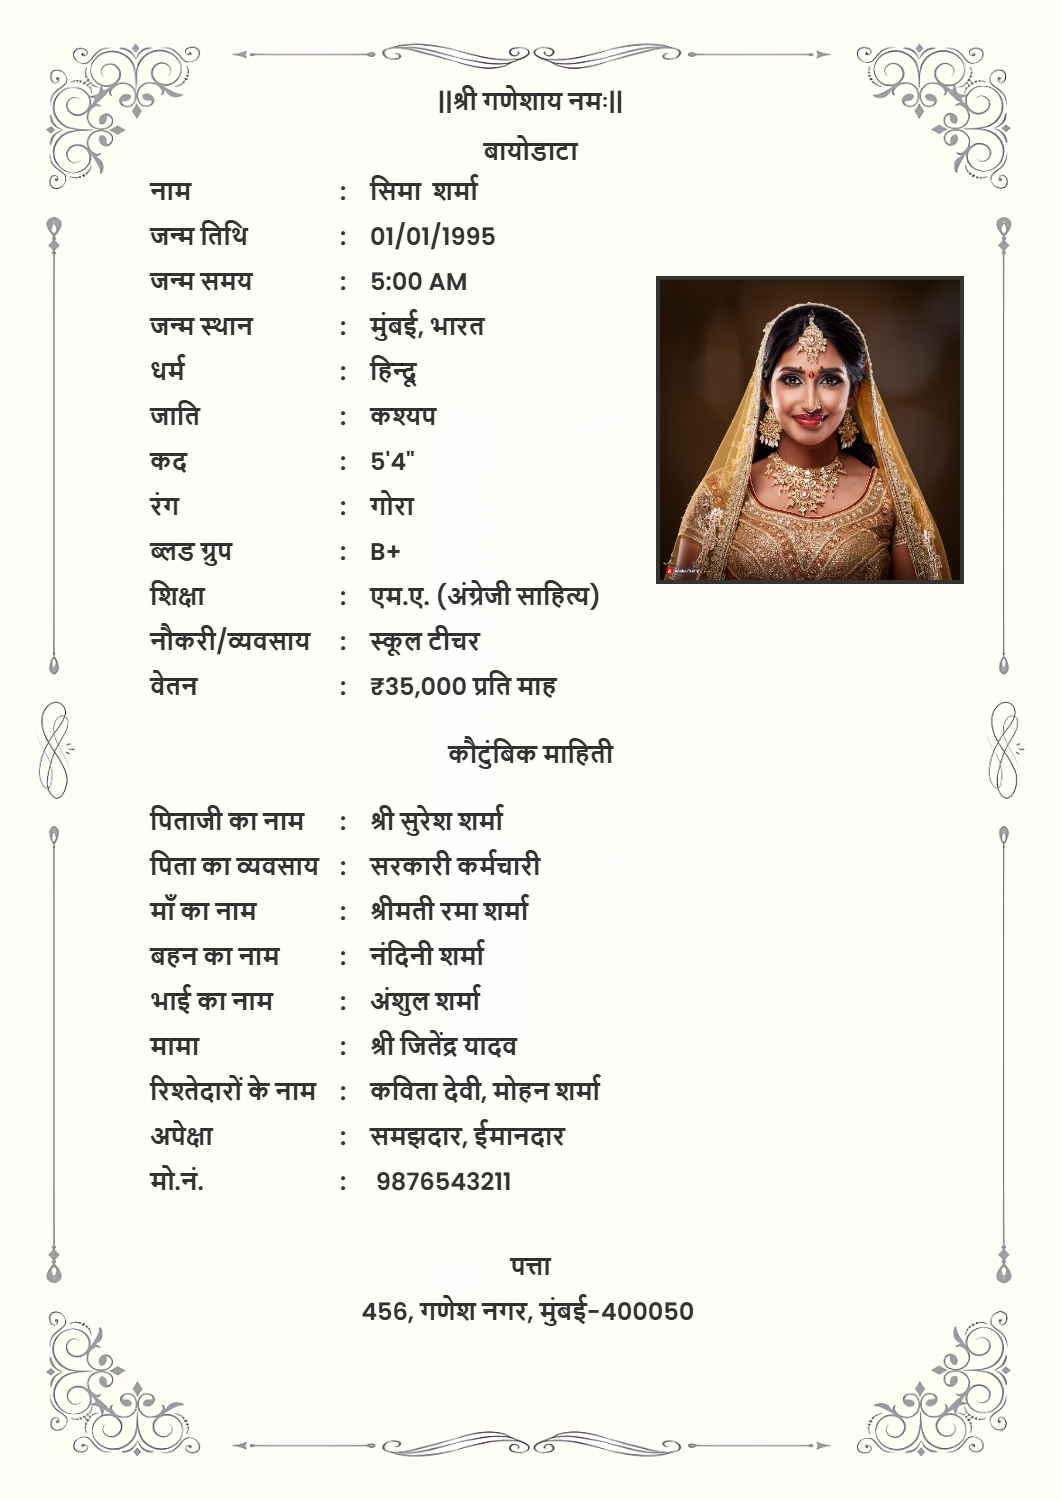 ||श्री गणेशाय नमः||
बायोडाटा
नाम : सिमा शर्मा
जन्म तिथि : 01/01/1995
जन्म समय : 5:00 AM
जन्म स्थान : मुंबई, भारत
धर्म : हिन्दू
जाति : कश्यप
कद : 5'4"
रंग : गोरा
ब्लड ग्रुप : B+
शिक्षा : एम.ए. (अंग्रेजी साहित्य)
नौकरी/व्यवसाय : स्कूल टीचर
वेतन : ₹35,000 प्रति माह
कौटुंबिक माहिती
पिताजी का नाम : श्री सुरेश शर्मा
पिता का व्यवसाय : सरकारी कर्मचारी
माँ का नाम : श्रीमती रमा शर्मा
बहन का नाम : नंदिनी शर्मा
भाई का नाम : अंशुल शर्मा
मामा : श्री जितेंद्र यादव
रिश्तेदारों के नाम : कविता देवी, मोहन शर्मा
अपेक्षा : समझदार, ईमानदार
मो.नं. : 9876543211
पत्ता
456, गणेश नगर, मुंबई-400050